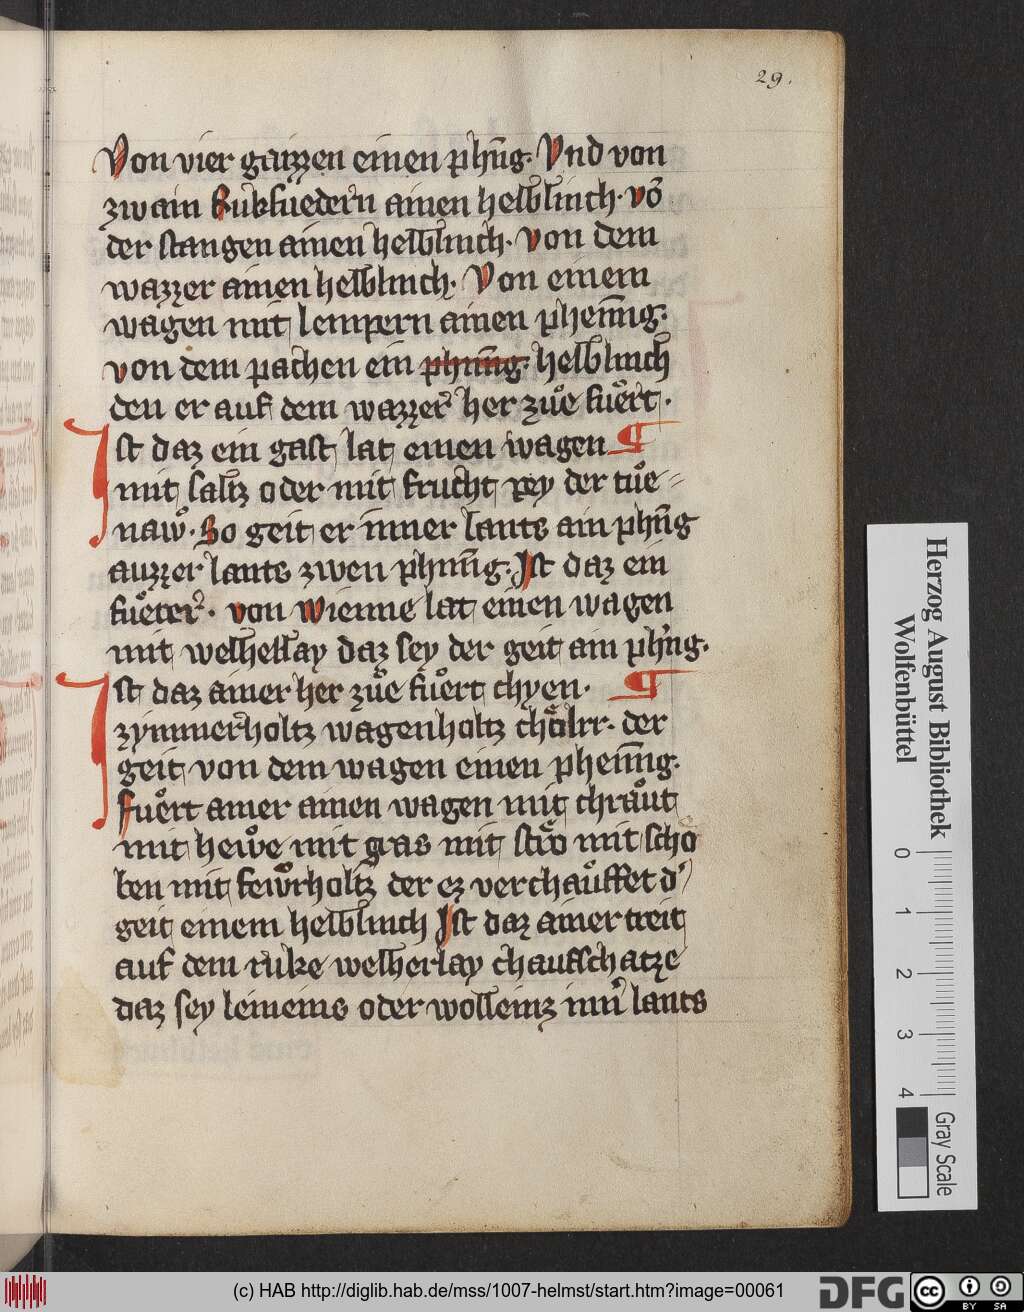 29.
Von vier gaizzen einen phñg. Vnd von
zwain Rukfuedern ainen helblinch. võ
der stangen ainen helblinch. von dem
wazzer ainen helblinch. Von einem
wagen mit lempern ainen phenïg.
von dem pachen ein phning. helblinch
den er auf dem wazzer her zuͦe fuͦert.
Ist daz ein gast lat einen wagen ¶
mit saltz oder mit frucht pey der tuͦe=
naw. So geit er inner lants ain phñg
auzzer lants zwen phning. Ist daz ein
fuͦeter. von wienne lat einen wagen
mit welhellay daz sey der geit ain phñg.
Ist daz ainer her zuͦe fuͦert chyen. ¶
zymmerholtz wagenholtz choͤlrr. der
geit von dem wagen einen phenïg.
fuͦert ainer ainen wagen mit chraͧut
mit heẘe mit gras mit stroͤ mit scho
ben mit feẘrholtz der ez verchauͦffet d'
geit einem helblinch Ist daz ainer treit
auf dem ruke welherlay chaufschatze
daz sey leineins oder wolleinz inn' lants
Herzog August Bibliothek
Wolfenbüttel
0 1 2 3 4
Gray Scale
(c) HAB http://diglib.hab.de/mss/1007-helmst/start.htm?image=00061
DFG
cc BY SA